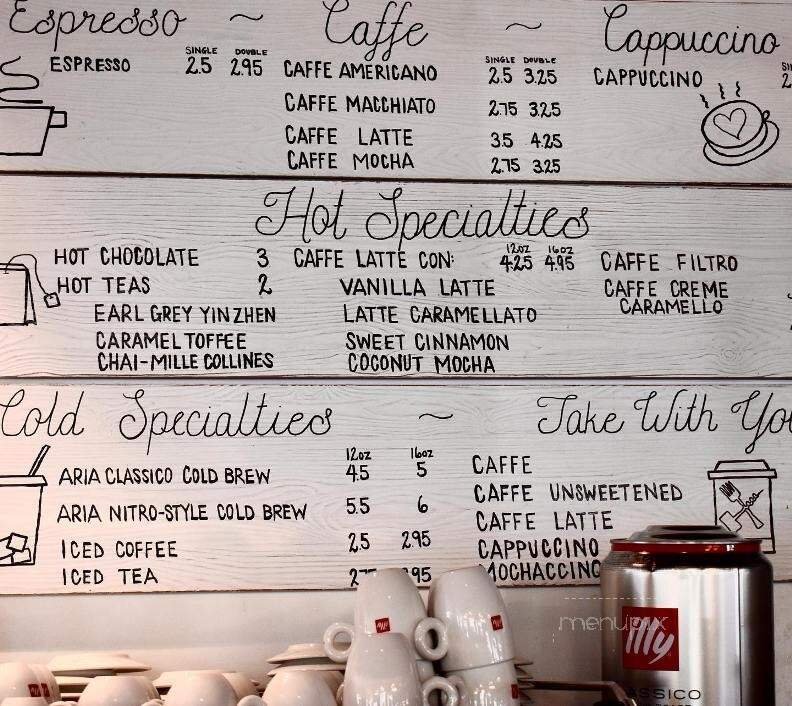 Espresso ~ Caffe ~ Cappuccino
SINGLE DOUBLE
ESPRESSO 2.5 2.95
SINGLE DOUBLE
CAFFE AMERICANO 2.5 3.25
CAFFE MACCHIATO 2.75 3.25
CAFFE LATTE 3.5 4.25
CAFFE MOCHA 2.75 3.25
CAPPUCCINO
Hot Specialties
HOT CHOCOLATE 3
HOT TEAS 2
EARL GREY YIN ZHEN
CARAMEL TOFFEE
CHAI-MILLE COLLINES
12oz 16oz
CAFFE LATTE CON: 4.25 4.95
VANILLA LATTE
LATTE CARAMELLATO
SWEET CINNAMON
COCONUT MOCHA
CAFFE FILTRO
CAFFE CREME
CARAMELLO
Cold Specialties ~ Take With You
12oz 16oz
ARIA CLASSICO COLD BREW 4.5 5
ARIA NITRO-STYLE COLD BREW 5.5 6
ICED COFFEE 2.5 2.95
ICED TEA
CAFFE
CAFFE UNSWEETENED
CAFFE LATTE
CAPPUCCINO
MOCHACCINO
menupix
illy